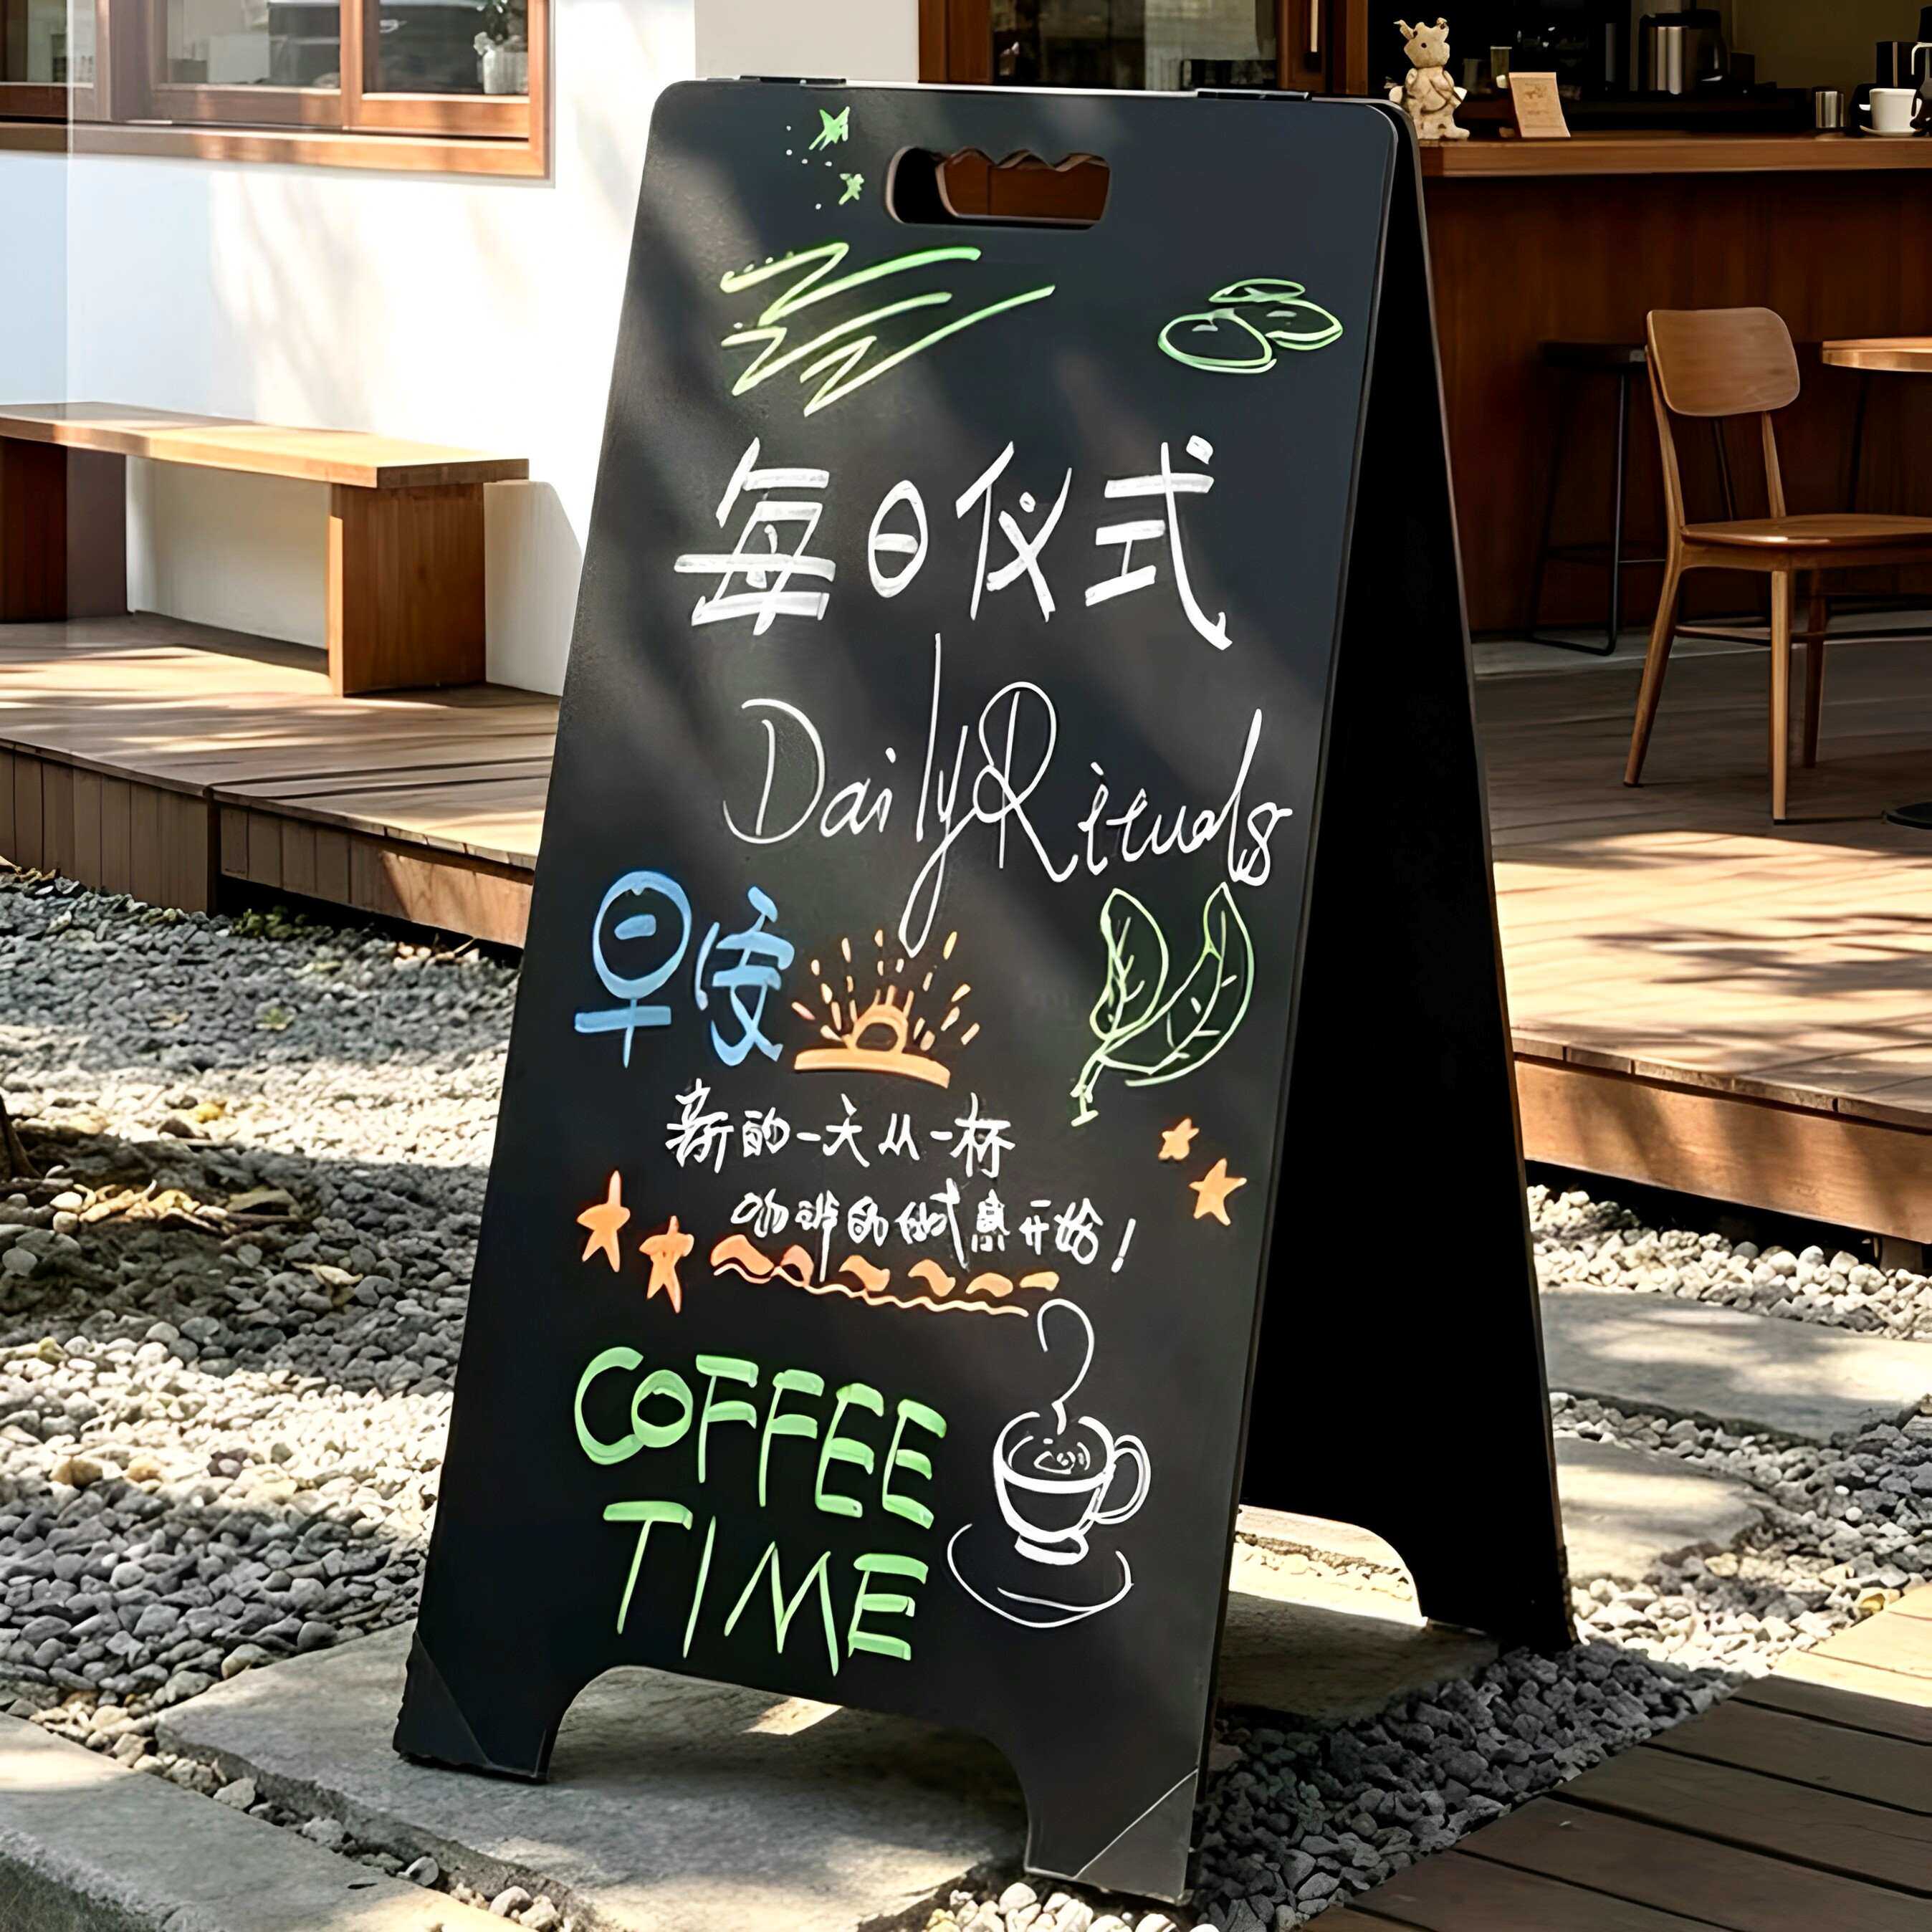 每日仪式
Daily Rituals
早安
新的一天从一杯
咖啡的仪式感开始！
COFFEE
TIME